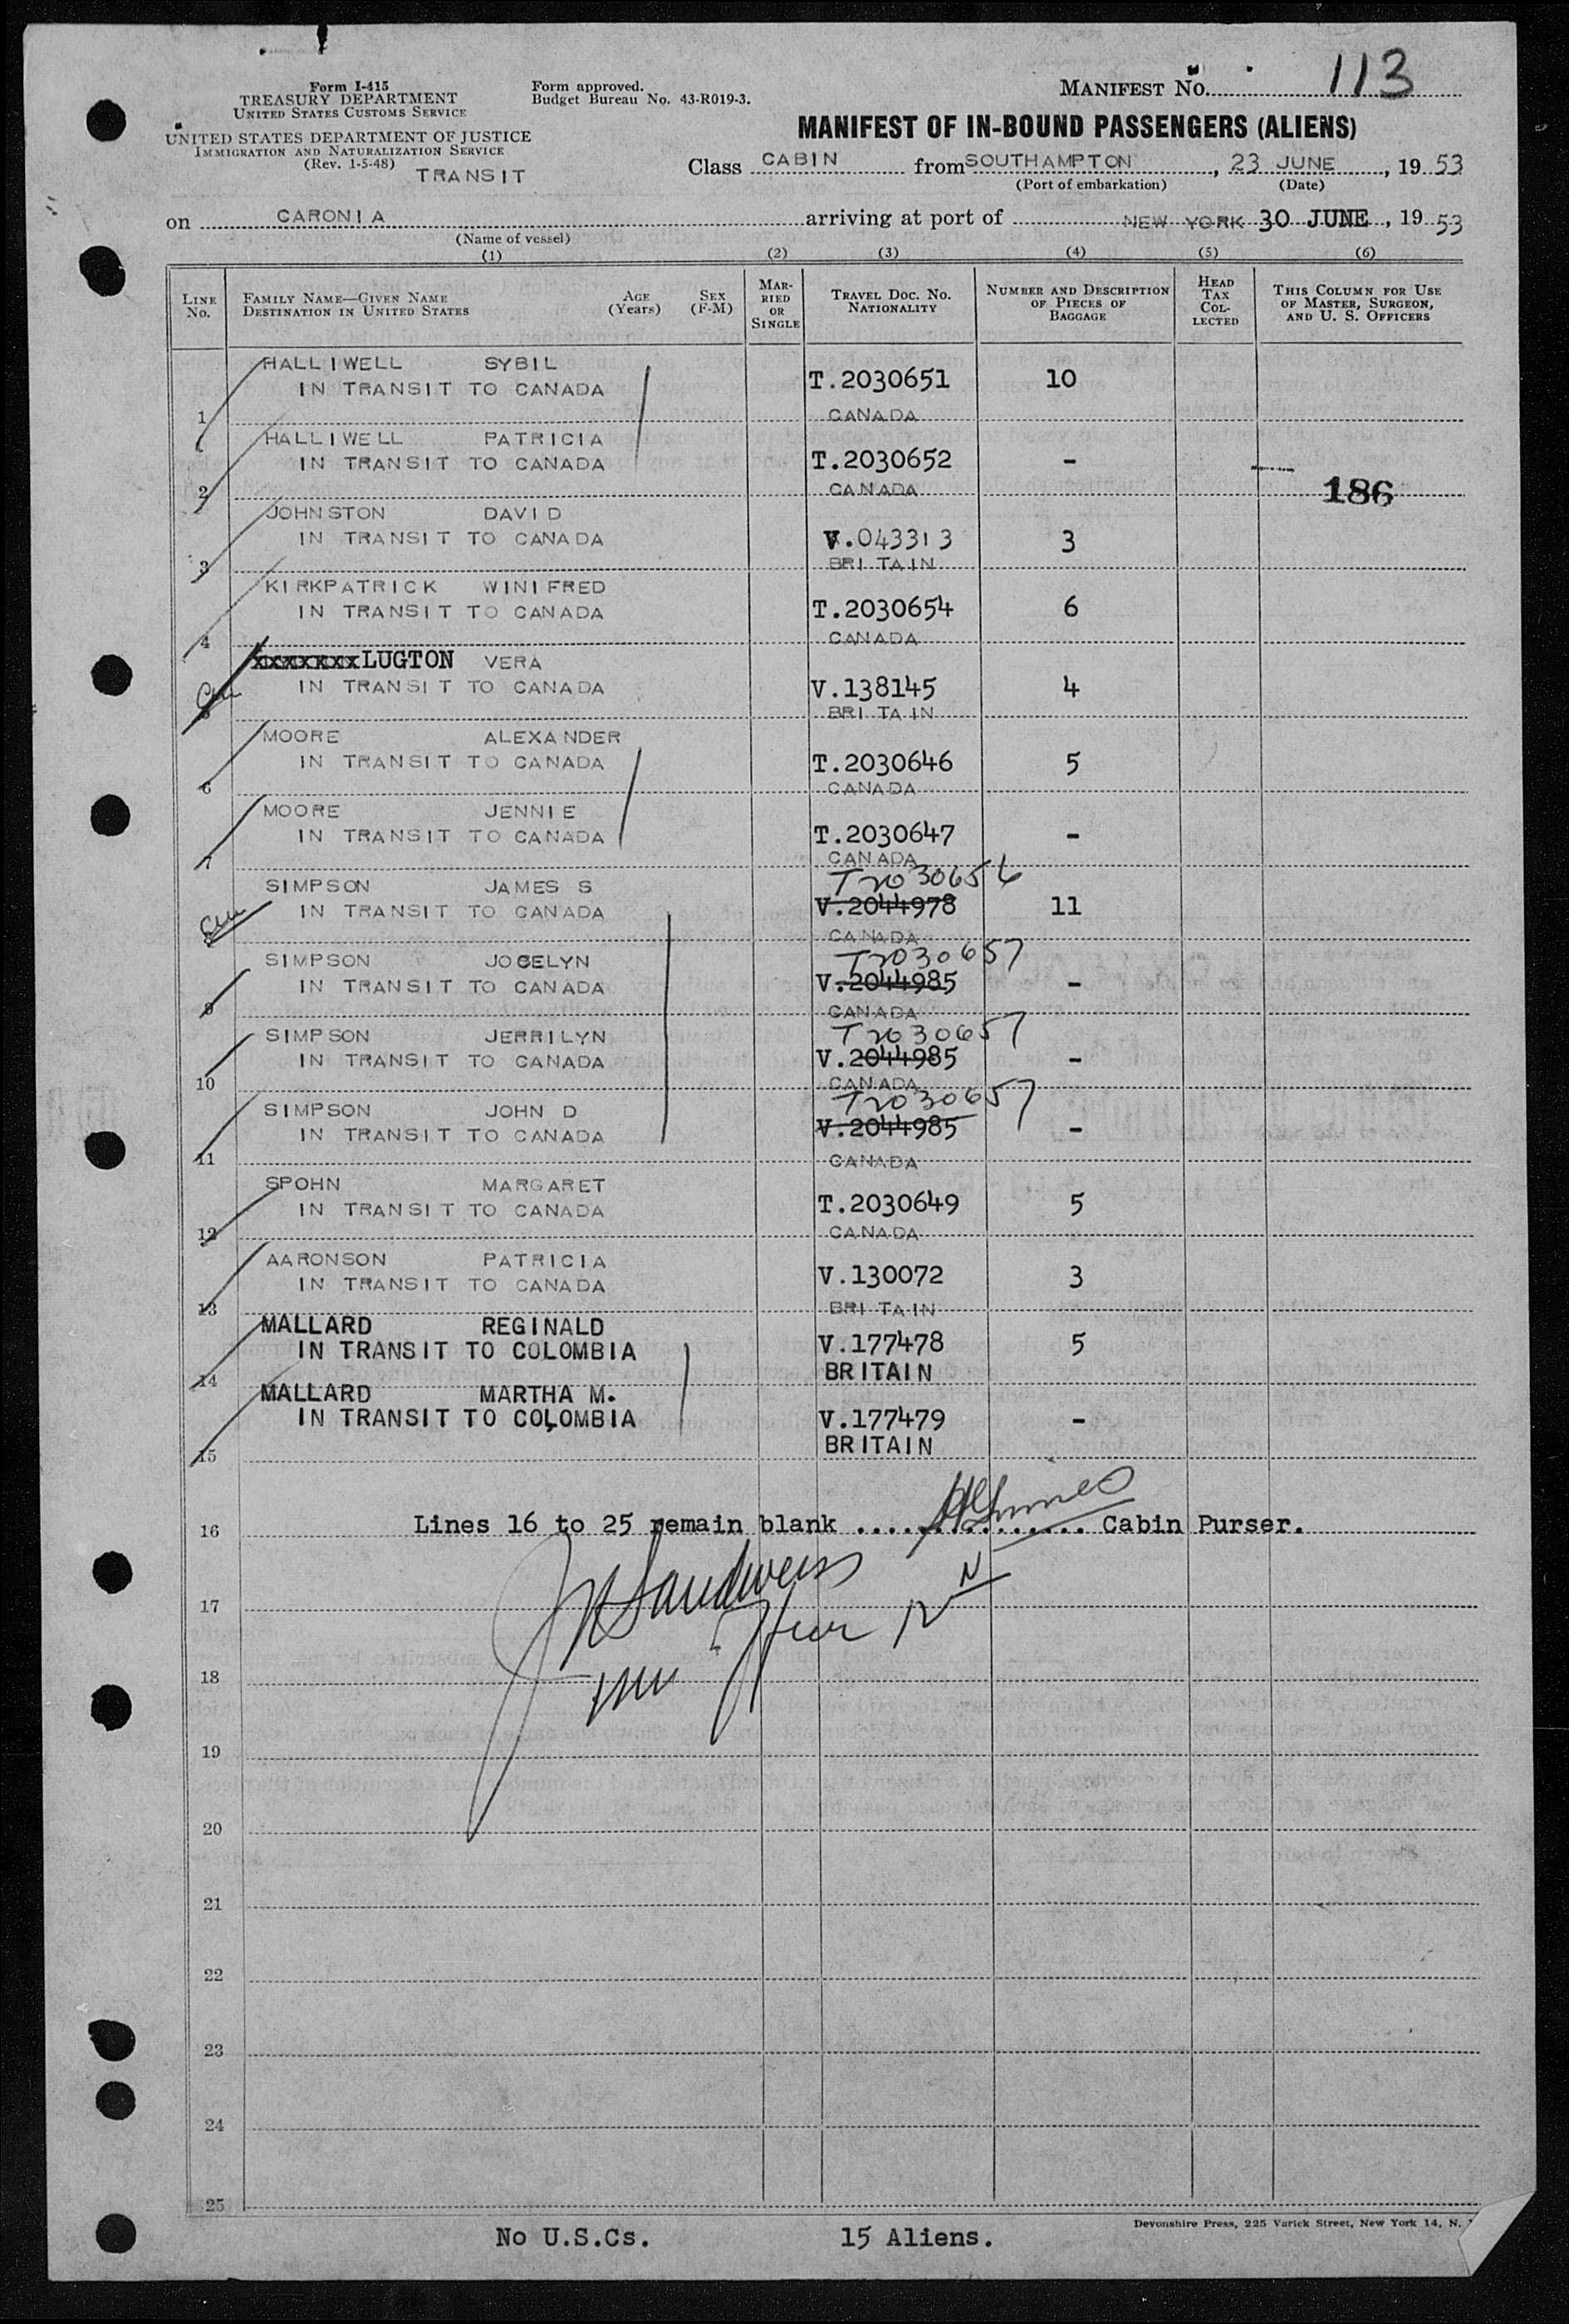 Form I-415
TREASURY DEPARTMENT
UNITED STATES CUSTOMS SERVICE
UNITED STATES DEPARTMENT OF JUSTICE
IMMIGRATION AND NATURALIZATION SERVICE
(Rev. 1-5-48)
TRANSIT
Form approved.
Budget Bureau No. 43-R019-3.
MANIFEST NO. 113
MANIFEST OF IN-BOUND PASSENGERS (ALIENS)
Class CABIN from SOUTHAMPTON, 23 JUNE, 19 53
(Port of embarkation) (Date)
on CARONIA arriving at port of NEW YORK 30 JUNE, 19 53
(Name of vessel)
(1) (2) (3) (4) (5) (6)
LINE NO.
FAMILY NAME—GIVEN NAME
DESTINATION IN UNITED STATES
AGE (Years)
SEX (F-M)
MARRIED OR SINGLE
TRAVEL DOC. NO. NATIONALITY
NUMBER AND DESCRIPTION OF PIECES OF BAGGAGE
HEAD TAX COLLECTED
THIS COLUMN FOR USE OF MASTER, SURGEON, AND U. S. OFFICERS
HALLIWELL SYBIL
IN TRANSIT TO CANADA T.2030651 10
1 CANADA
HALLIWELL PATRICIA
IN TRANSIT TO CANADA T.2030652 -
2 CANADA 186
JOHNSTON DAVID
IN TRANSIT TO CANADA V.043313 3
3 BRITAIN
KIRKPATRICK WINIFRED
IN TRANSIT TO CANADA T.2030654 6
4 CANADA
XXXXXXX LUGTON VERA
IN TRANSIT TO CANADA V.138145 4
5 BRITAIN
MOORE ALEXANDER
IN TRANSIT TO CANADA T.2030646 5
6 CANADA
MOORE JENNIE
IN TRANSIT TO CANADA T.2030647 -
7 CANADA
SIMPSON JAMES S T2030656
IN TRANSIT TO CANADA V.2044978 11
8 CANADA
SIMPSON JOCELYN T2030657
IN TRANSIT TO CANADA V.2044985 -
9 CANADA
SIMPSON JERRILYN T2030657
IN TRANSIT TO CANADA V.2044985 -
10 CANADA
SIMPSON JOHN D T2030657
IN TRANSIT TO CANADA V.2044985 -
11 CANADA
SPOHN MARGARET
IN TRANSIT TO CANADA T.2030649 5
12 CANADA
AARONSON PATRICIA
IN TRANSIT TO CANADA V.130072 3
13 BRITAIN
MALLARD REGINALD
IN TRANSIT TO COLOMBIA V.177478 5
14 BRITAIN
MALLARD MARTHA M.
IN TRANSIT TO COLOMBIA V.177479 -
15 BRITAIN
16 Lines 16 to 25 remain blank ............... Cabin Purser.
17
18
19
20
21
22
23
24
25
Devonshire Press, 225 Varick Street, New York 14, N.
No U.S.Cs. 15 Aliens.